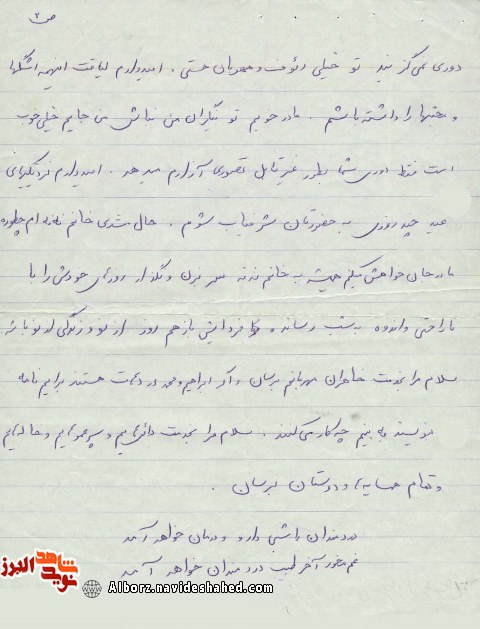 ص ۲
دوری نمی‌گزیند تو خیلی رئوف و مهربان هستی . امیدوارم لیاقت اینهمه اشکها
و محنتها را داشته باشم . مادر خوبم تو نگران من نباش من جایم خیلی خوب
است فقط دوری شما بطور غیر قابل تصوری آزارم میدهد . امیدوارم نزدیکیهای
عید چند روزی به حضورتان شرفیاب شوم . حال مشدی خانم ننه ام چطوره
مادر جان خواهش میکنم همیشه به خانم ننه سر بزن و نگذار روزهای خودش را با
ناراحتی و اندوه به شب رساند و فردایش باز هم روز از نو و زندگی از نو باشد
سلام مرا بخدمت خواهران مهربانم برسان و اگر ابراهیم و محمد در دهات هستند برایم نامه
بنویسند به بینم چه کار می‌کنند . سلام مرا بخدمت دائی‌هایم و عموهایم و خاله‌هایم
و تمام همسایه‌ها و دوستان برسان .
دردمندان را شبی دارو و درمان خواهد آمد
غم مخور آخر طبیب دردمندان خواهد آمد
شاهد
نوید
البرز
Alborz.navideshahed.com